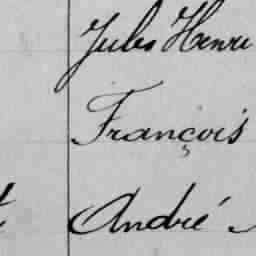 Jules Henri
François
André